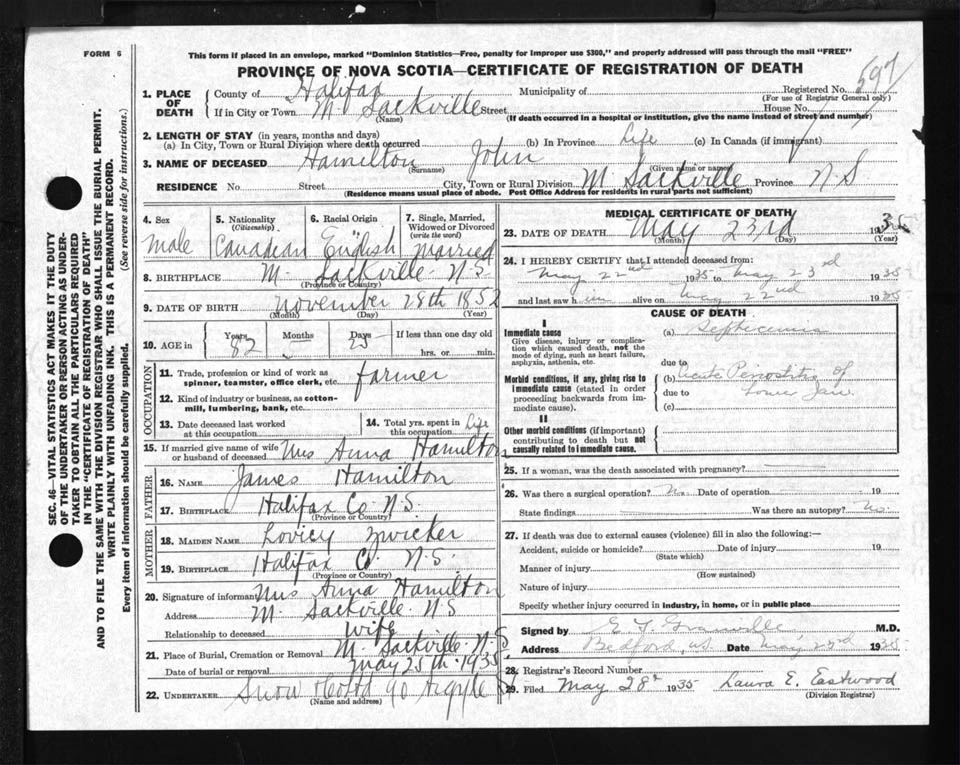 FORM 6
This form if placed in an envelope, marked "Dominion Statistics—Free, penalty for improper use $300," and properly addressed will pass through the mail "FREE"
PROVINCE OF NOVA SCOTIA—CERTIFICATE OF REGISTRATION OF DEATH
SEC. 46—VITAL STATISTICS ACT MAKES IT THE DUTY
OF THE UNDERTAKER OR PERSON ACTING AS UNDER-
TAKER TO OBTAIN ALL THE PARTICULARS REQUIRED
IN THE "CERTIFICATE OF REGISTRATION OF DEATH"
AND TO FILE THE SAME WITH THE DIVISION REGISTRAR WHO SHALL ISSUE THE BURIAL PERMIT.
WRITE PLAINLY WITH UNFADING INK. THIS IS A PERMANENT RECORD.
Every item of information should be carefully supplied. (See reverse side for instructions.)
1. PLACE OF DEATH
County of Halifax Municipality of Registered No. 597
(For use of Registrar General only)
If in City or Town M. Sackville Street House No.
(Name) (If death occurred in a hospital or institution, give the name instead of street and number)
2. LENGTH OF STAY (in years, months and days)
(a) In City, Town or Rural Division where death occurred (b) In Province Life (c) In Canada (if immigrant)
3. NAME OF DECEASED Hamilton John
(Surname) (Given name or names)
RESIDENCE No. Street City, Town or Rural Division M Sackville Province N S
(Residence means usual place of abode. Post Office Address for residents in rural parts not sufficient)
4. Sex
Male
5. Nationality
(Citizenship)
Canadian
6. Racial Origin
English
7. Single, Married, Widowed or Divorced
(write the word)
Married
8. BIRTHPLACE M. Sackville N.S.
(Province or Country)
9. DATE OF BIRTH November 28th 1852
(Month) (Day) (Year)
10. AGE in Years 82 Months 5 Days 25 If less than one day old
hrs. or min.
OCCUPATION
11. Trade, profession or kind of work as
spinner, teamster, office clerk, etc. farmer
12. Kind of industry or business, as cotton-
mill, lumbering, bank, etc.
13. Date deceased last worked
at this occupation
14. Total yrs. spent in
this occupation life
15. If married give name of wife
or husband of deceased Mrs Anna Hamilton
FATHER
16. NAME James Hamilton
17. BIRTHPLACE Halifax Co N.S.
(Province or Country)
MOTHER
18. MAIDEN NAME Lovicy Zwicker
19. BIRTHPLACE Halifax Co N.S.
(Province or Country)
20. Signature of informant Mrs Anna Hamilton
Address M. Sackville N S
Relationship to deceased wife
21. Place of Burial, Cremation or Removal M. Sackville N.S
Date of burial or removal May 25th 1935
22. UNDERTAKER Snow 90 Argyle S
(Name and address)
MEDICAL CERTIFICATE OF DEATH
23. DATE OF DEATH May 23rd 1935
(Month) (Day) (Year)
24. I HEREBY CERTIFY that I attended deceased from:
May 22nd 1935 to May 23rd 1935
and last saw him alive on May 22nd 1935
CAUSE OF DEATH
I
Immediate cause
Give disease, injury or complica-
tion which caused death, not the
mode of dying, such as heart failure,
asphyxia, asthenia, etc.
(a) Septicemia
due to
Morbid conditions, if any, giving rise to
immediate cause (stated in order
proceeding backwards from im-
mediate cause).
(b) Acute Periostitis of
due to Lower Jaw.
(c)
II
Other morbid conditions (if important)
contributing to death but not
causally related to immediate cause.
25. If a woman, was the death associated with pregnancy?
26. Was there a surgical operation? No. Date of operation 19
State findings Was there an autopsy? No.
27. If death was due to external causes (violence) fill in also the following:—
Accident, suicide or homicide? Date of injury 19
(State which)
Manner of injury
(How sustained)
Nature of injury
Specify whether injury occurred in industry, in home, or in public place
Signed by E. T. Granville M.D.
Address Bedford, N.S. Date May 23rd 1935
28. Registrar's Record Number
29. Filed May 28th 1935 Laura E. Eastwood
(Division Registrar)